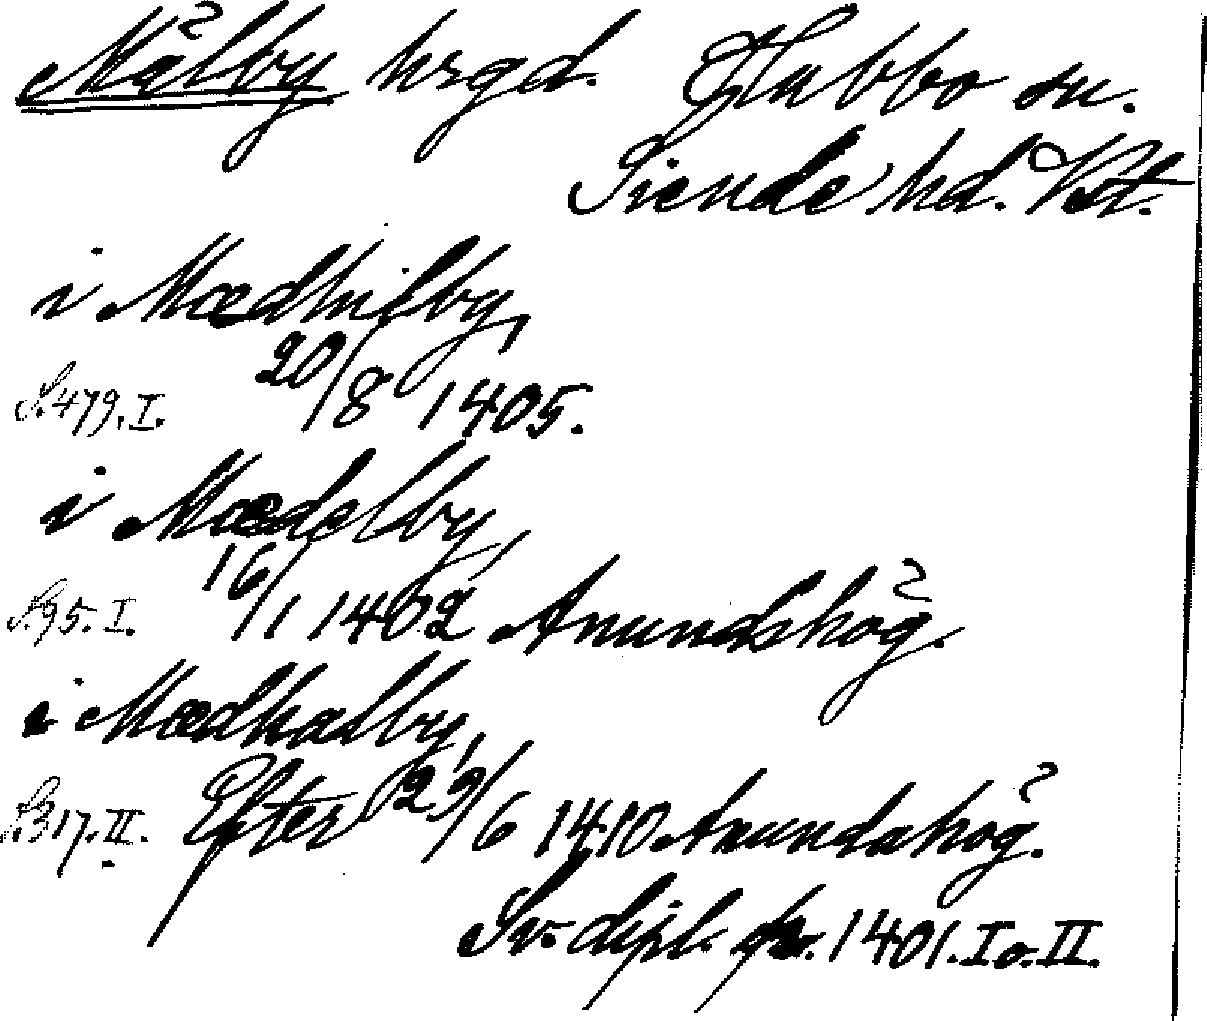 Målby hrgd. Hubbo sn.
Siende hd. Vst.
i Mædhilby,
S. 479. I. 20/8 1405.
i Mædelby,
S. 95. I. 16/1 1402 Anundshög.
i Mædhalby,
S. 317. II. Efter 29/6 1410. Anundahög.
Sv. dipl. fr. 1401. I o. II.